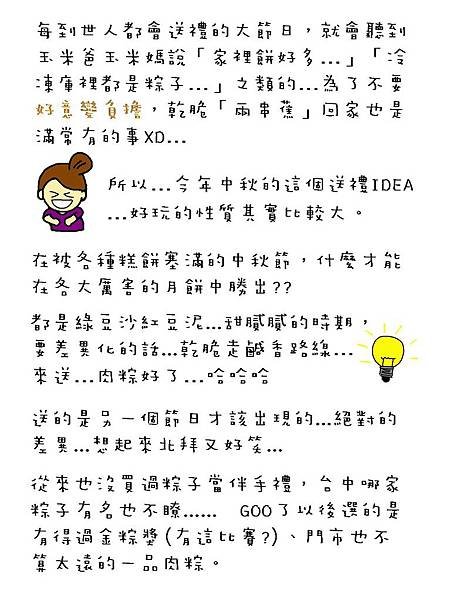 每到世人都會送禮的大節日，就會聽到
玉米爸玉米媽說「家裡餅好多...」「冷
凍庫裡都是粽子...」之類的...為了不要
好意變負擔，乾脆「兩串蕉」回家也是
滿常有的事XD...
所以...今年中秋的這個送禮IDEA
...好玩的性質其實比較大。
在被各種糕餅塞滿的中秋節，什麼才能
在各大厲害的月餅中勝出??
都是綠豆沙紅豆泥...甜膩膩的時期，
要差異化的話...乾脆走鹹香路線...
來送...肉粽好了...哈哈哈
送的是另一個節日才該出現的...絕對的
差異...想起來北拜又好笑...
從來也沒買過粽子當伴手禮，台中哪家
粽子有名也不瞭...... GOO了以後選的是
有得過金粽獎(有這比賽?)、門市也不
算太遠的一品肉粽。